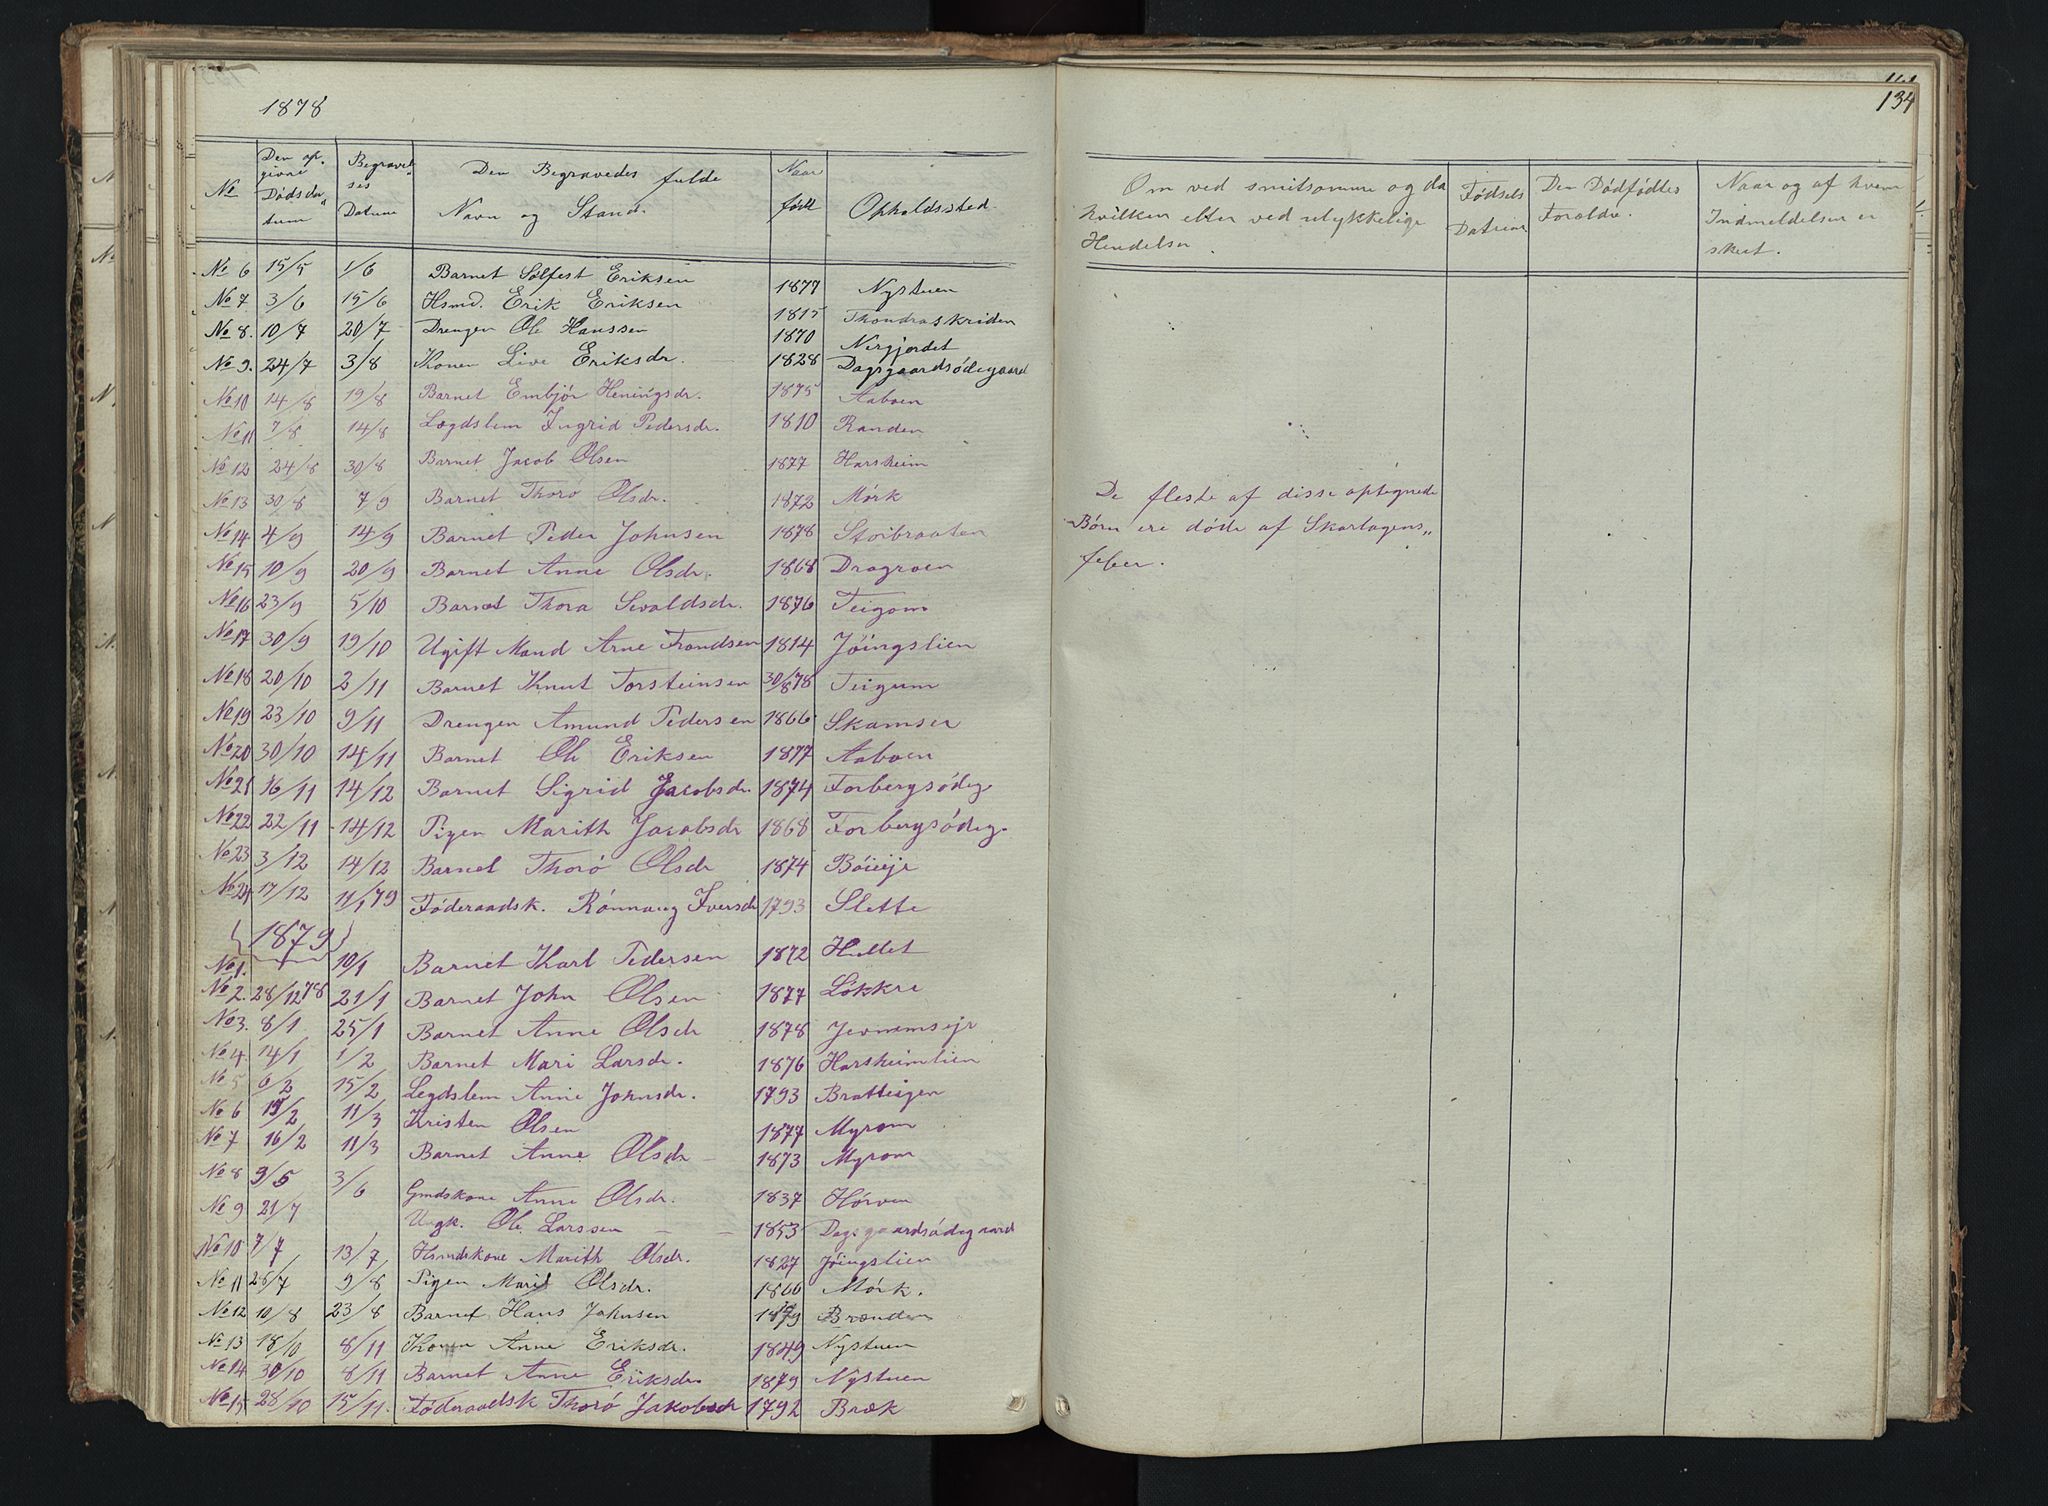 1878
No
Den opgivne Dødsdatum
Begravelses Datum
Den Begravedes fulde Navn og Stand.
Naar født
Opholdssted.
No 6 15/5 1/6 Barnet Sølfest Eriksen 1877 Nystuen
No 7 3/6 15/6 Hsmd. Erik Eriksen 1815 Thondraskriden
No 8. 10/7 20/7 Drengen Ole Hanssen 1870 Nergjordet
No 9. 24/7 3/8 Konen Live Eriksdr. 1828 Dagsgaardsødegaard
No 10 14/8 19/8 Barnet Embjør Heningsdr. 1875 Aaboen
No 11 7/8 14/8 Lægdslem Ingrid Pedersdr. 1810 Randen
No 12 24/8 30/8 Barnet Jacob Olsen 1877 Harsheim
No 13 30/8 7/9 Barnet Thorø Olsdr. 1872 Mørk
No 14 4/9 14/9 Barnet Peder Johnsen 1878 Storbraaten
No 15 10/9 20/9 Barnet Anne Olsdr. 1868 Dragroen
No 16 23/9 5/10 Barnet Thora Sivaldsdr. 1876 Teigom
No 17 30/9 19/10 Ugift Mand Arne Trondsen 1814 Jøingslien
No 18 20/10 2/11 Barnet Knut Torsteinsen 30/8 78 Teigum
No 19 23/10 9/11 Drengen Amund Pedersen 1866 Skamser
No 20 30/10 14/11 Barnet Ole Eriksen 1877 Aaboen
No 21 16/11 14/12 Barnet Sigrid Jacobsdr. 1874 Forbergsødeg
No 22 22/11 14/12 Pigen Marith Jacobsdr 1868 Forbergsødeg.
No 23 3/12 14/12 Barnet Thorø Olsdr 1874 Bøieeje
No 24 17/12 11/1 79 Føderaadsk. Rønnaug Iversdr 1793 Slette
{1879}
No 1. 10/1 Barnet Karl Pedersen 1872 Hullet
No 2. 28/12 78 21/1 Barnet John Olsen 1877 Løkkre
No 3. 8/1 25/1 Barnet Anne Olsdr 1878 Jevnemsejr
No 4 14/1 1/2 Barnet Mari Larsdr. 1876 Harsheimlien
No 5 6/2 15/2 Legdslem Anne Johnsdr. 1793 Bratteigen
No 6 15/2 11/3 Kristen Olsen 1877 Myrom
No 7 16/2 11/3 Barnet Anne Olsdr 1873 Myrom
No 8 9/5 3/6 Gmdskone Anne Olsdr. 1837 Hørven
No 9 21/7 Ungk. Ole Larssen 1853 Dagsgaardsødegaard
No 10 7/7 13/7 Hsmdskone Marith Olsdr. 1827 Jøingslien
No 11 26/7 9/8 Pigen Marit Olsdr. 1860 Mørk.
No 12 10/8 23/8 Barnet Hans Johnsen 1879 Brænden
No 13 18/10 8/11 Konen Anne Eriksdr. 1849 Nystuen
No 14 30/10 8/11 Barnet Anne Eriksdr. 1879 Nystuen
No 15 28/10 15/11. Føderaadsk Thorø Jakobsdr 1792 Bræk
134
Om ved smitsomme og da hvilken eller ved ulykkelige Hendelser.
Fødsels Datum
Den Dødfødtes Forældre.
Naar og af hvem Indmeldelsen er skeet.
De fleste af disse optegnede
Børn ere døde af Skarlagens„
feber.